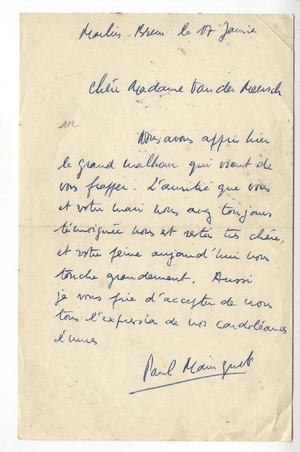 le 17 Janvier
Chère Madame Van der Meersch
Nous avons appris hier
le grand malheur qui vient de
vous frapper. L'amitié que vous
et votre mari nous avez toujours
témoignée nous est restée très chère,
et votre peine aujourd'hui nous
touche grandement. Aussi
je vous prie d'accepter de nous
tous l'expression de nos condoléances
émues
Paul